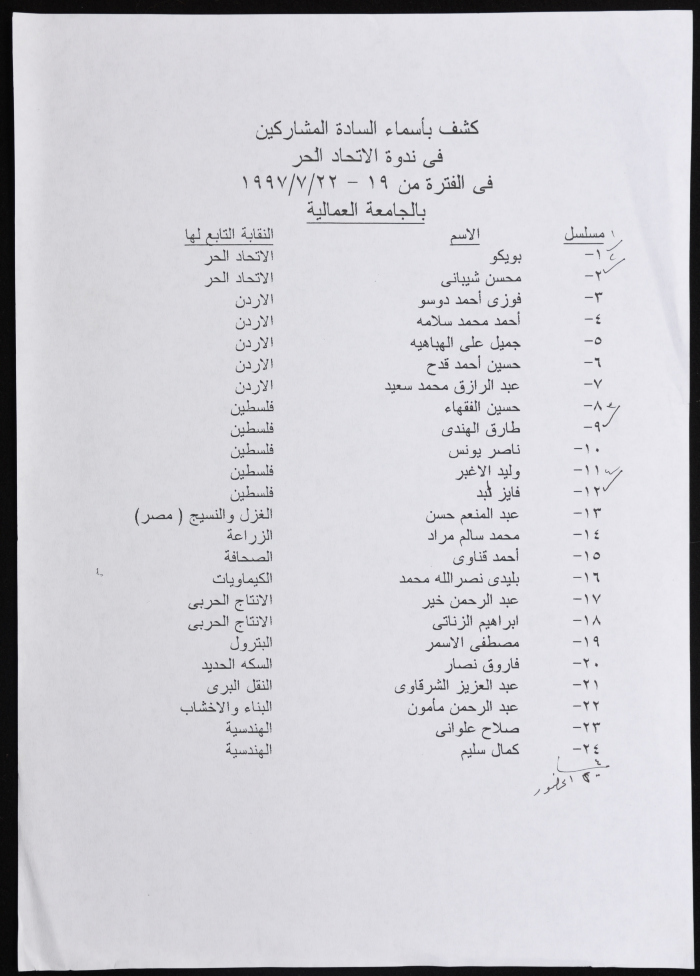 كشف بأسماء السادة المشاركين
فى ندوة الاتحاد الحر
فى الفترة من ١٩ – ١٩٩٧/٧/٢٢
بالجامعة العمالية
مسلسل الاسم النقابة التابع لها
١– بويكو الاتحاد الحر
٢– محسن شيبانى الاتحاد الحر
٣– فوزى أحمد دوسو الاردن
٤– أحمد محمد سلامه الاردن
٥– جميل على الهباهيه الاردن
٦– حسين أحمد قدح الاردن
٧– عبد الرازق محمد سعيد الاردن
٨– حسين الفقهاء فلسطين
٩– طارق الهندى فلسطين
١٠– ناصر يونس فلسطين
١١– وليد الاغبر فلسطين
١٢– فايز فلسطين
١٣– عبد المنعم حسن الغزل والنسيج ( مصر)
١٤– محمد سالم مراد الزراعة
١٥– أحمد قناوى الصحافة
١٦– بليدى نصرالله محمد الكيماويات
١٧– عبد الرحمن خير الانتاج الحربى
١٨– ابراهيم الزناتى الانتاج الحربى
١٩– مصطفى الاسمر البترول
٢٠– فاروق نصار السكه الحديد
٢١– عبد العزيز الشرقاوى النقل البرى
٢٢– عبد الرحمن مأمون البناء والاخشاب
٢٣– صلاح علوانى الهندسية
٢٤– كمال سليم الهندسية
الحضور